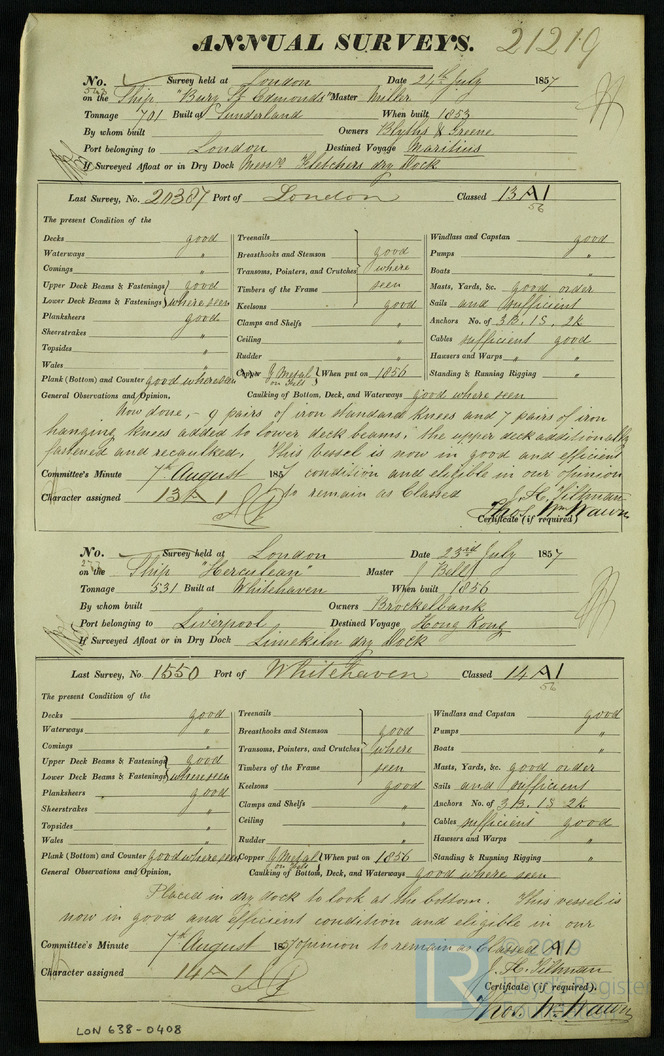 ANNUAL SURVEYS. 21219
No. Survey held at London Date 24th July 1857
on the Ship "Bury St Edmonds" Master Miller
Tonnage 701 Built at Sunderland When built 1853
By whom built Owners Blyths & Greene
Port belonging to London Destined Voyage Mauritius
If Surveyed Afloat or in Dry Dock Messrs Fletchers dry Dock
Last Survey, No. 20387 Port of London Classed 13 A1
56
The present Condition of the
Decks good Treenails Windlass and Capstan good
Waterways " Breasthooks and Stemson good Pumps "
Comings " Transoms, Pointers, and Crutches where Boats "
Upper Deck Beams & Fastenings good Timbers of the Frame seen Masts, Yards, &c. good order
Lower Deck Beams & Fastenings where seen Keelsons good Sails and sufficient
Planksheers good Clamps and Shelfs " Anchors No. of 3B. 1S. 2K
Sheerstrakes " Ceiling " Cables sufficient good
Topsides " Rudder " Hawsers and Warps " "
Wales " Copper Y Metal on Felt When put on 1856 Standing & Running Rigging "
Plank (Bottom) and Counter good where seen Caulking of Bottom, Deck, and Waterways good where seen
General Observations and Opinion,
now done, - 9 pairs of iron standard knees and 7 pairs of iron
hanging knees added to lower deck beams, the upper deck additionally
fastened and recaulked. This vessel is now in good and efficient
Committee's Minute 7th August 1857 condition and eligible in our opinion
Character assigned 13 A 1 to remain as Classed J. H. Tillman
Thos. Wm Wawn
Certificate (if required)
No. Survey held at London Date 23rd July 1857
277
on the Ship "Herculean" Master J Bell
Tonnage 531 Built at Whitehaven When built 1856
By whom built Owners Brockelbank
Port belonging to Liverpool Destined Voyage Hong Kong
If Surveyed Afloat or in Dry Dock Limekiln dry Dock
Last Survey, No 1550 Port of Whitehaven Classed 14 A1
56
The present Condition of the
Decks good Treenails Windlass and Capstan good
Waterways " Breasthooks and Stemson good Pumps "
Comings " Transoms, Pointers, and Crutches where Boats "
Upper Deck Beams & Fastenings good Timbers of the Frame seen Masts, Yards, &c. good order
Lower Deck Beams & Fastenings where seen Keelsons good Sails and sufficient
Planksheers good Clamps and Shelfs " Anchors No. of 3B. 1S 2K
Sheerstrakes " Ceiling " Cables sufficient good
Topsides " Rudder " Hawsers and Warps "
Wales " Copper Y Metal on Felt When put on 1856 Standing & Running Rigging "
Plank (Bottom) and Counter good where seen Caulking of Bottom, Deck, and Waterways good where seen
General Observations and Opinion,
Placed in dry dock to look at the bottom. This vessel is
now in good and efficient condition and eligible in our
Committee's Minute 7th August 1857 opinion to remain as Classed A1
Character assigned 14 A 1 J. H. Tillman
Certificate (if required).
Thos. Wm Wawn
LON 638-0408
© 2019
LR Lloyd's Register